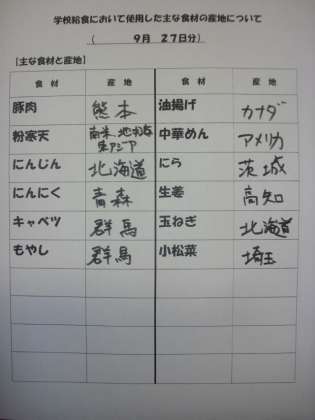 学校給食において使用した主な食材の産地について
( 9月 27日分)
【主な食材と産地】
食材 産地 食材 産地
豚肉 熊本 油揚げ カナダ
粉寒天 南米、地中海 東アジア 中華めん アメリカ
にんじん 北海道 にら 茨城
にんにく 青森 生姜 高知
キャベツ 群馬 玉ねぎ 北海道
もやし 群馬 小松菜 埼玉